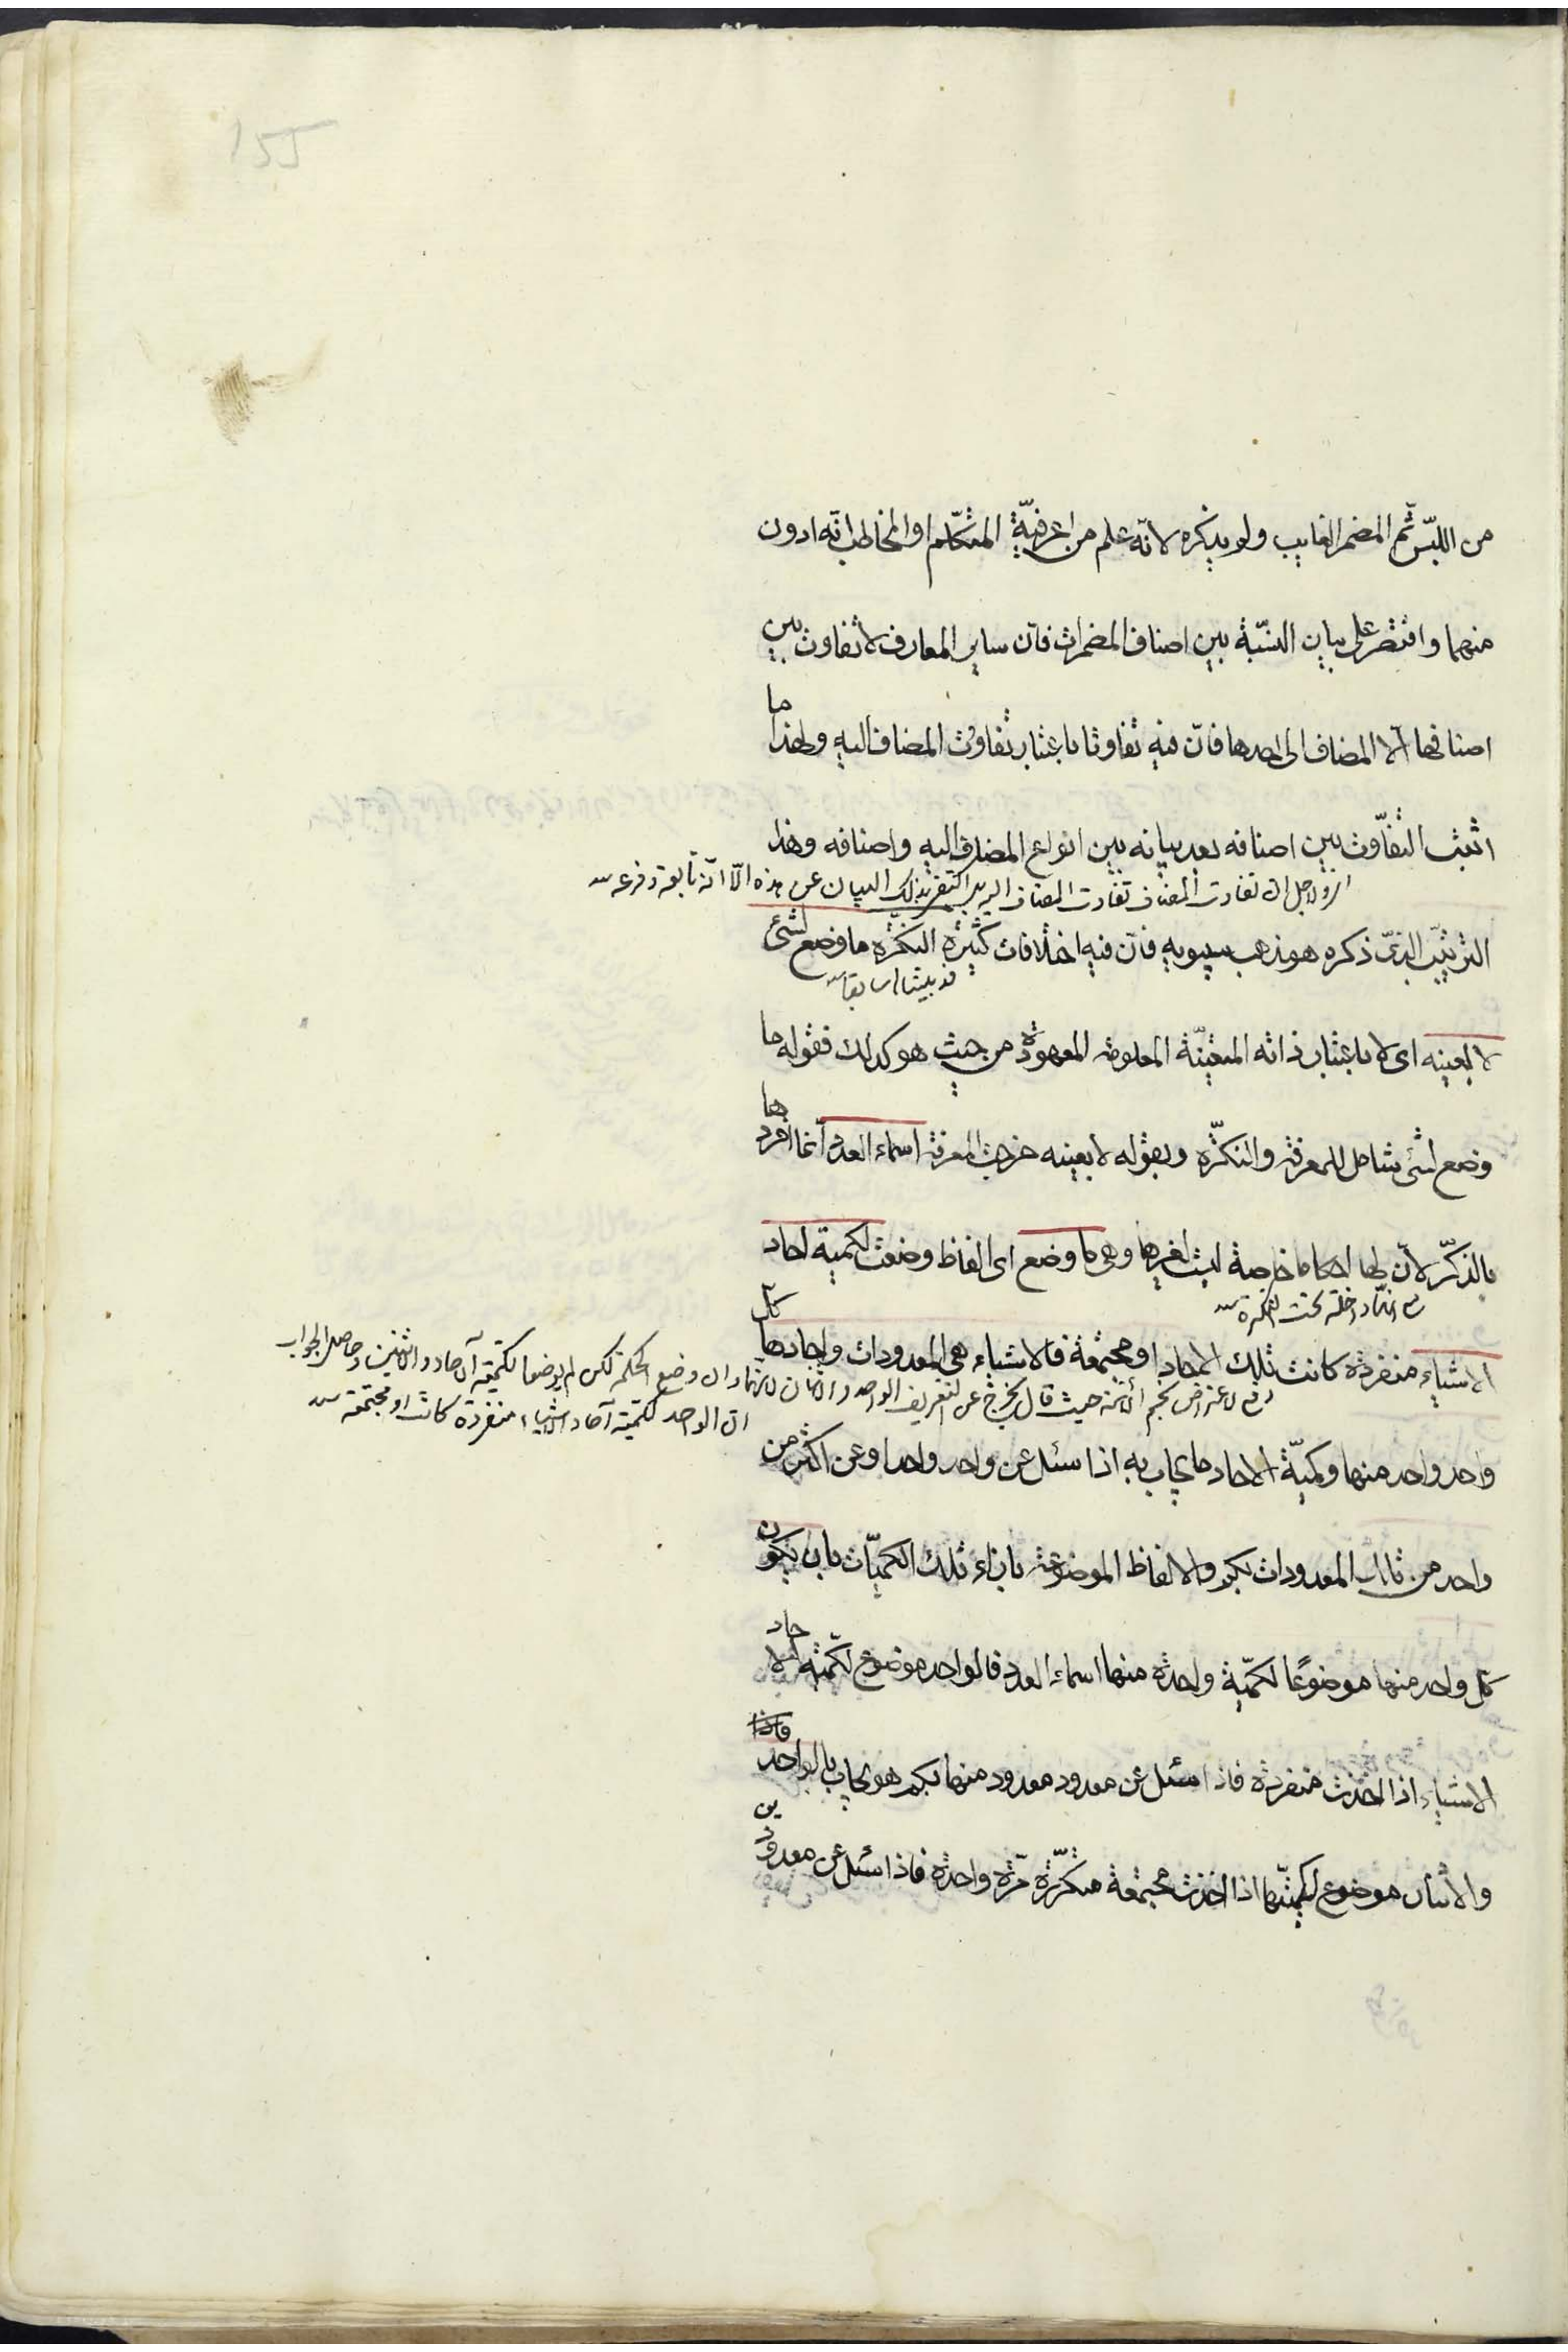 155
من اللبس ثم المضمر الغايب ولو يذكره لانه علم من اعرفية المتكلم او المخاطب انه ادون
منهما واقتصر على بيان النسبة بين اصناف المضمرات فان ساير المعارف لا تفاوت بين
اصنافها الا المضاف الى احدها فان فيه تفاوتا باعتبار تفاوت المضاف اليه ولهذا ما
اثبت التفاوت بين اصنافه بعد بيانه بين انواع المضاف اليه واصنافه وهذا
لاجل ان تفاوت المضاف تفاوت المضاف اليه اكتفى بذلك البيان عن هذه الا انه تابعه وفرعه
الترتيب الذي ذكره هو مذهب سيبويه فان فيه اختلافات كثيرة النكرة ما وضع لشئ
قد بيناها سابقا
لا بعينه اى لا باعتبار ذاته المتعينة المعلومة المعهودة من حيث هو كذلك فقوله ما
وضع لشئ شامل للمعرفة والنكرة وبقوله لا بعينه خرجت المعرفة اسماء العدد انما افردها
بالذكر لان لها احكاما خاصة ليت لغيرها وهى ما وضع اى الفاظ وضعت لكمية احاد
مع انها داخلة تحت النكرة
الاشياء منفردة كانت تلك الاحاد او مجتمعة فالاشياء هى المعدودات واحادها كل
دفع لاعتراض نجم الائمة حيث قال يخرج عن التعريف الواحد والاثنان لانهما وان وضع الكلمة لكن لم يوضعا لكمية آلاحاد والاثنين وحاصل الجواب
ان الواحد لكمية آحاد الاشياء منفردة كانت او مجتمعة
واحد واحد منها وكمية الاحاد ما يجاب به اذا سئل عن واحد واحد او عن اكثر من
واحد من تلك المعدودات بكم والالفاظ الموضوعة بازاء تلك الكميات بان يكون
كل واحد منها موضوعا لكمية واحدة منها اسماء العدد فالواحد موضوع لكمية الاحاد
الاشياء اذا اخذت منفردة فاذا سئل عن معدود معدود منها بكم هو يجاب بالواحد
والاثنان موضوع لكميتها اذا اخذت مجتمعة متكررة مرة واحدة فاذا سئل عن معدودين